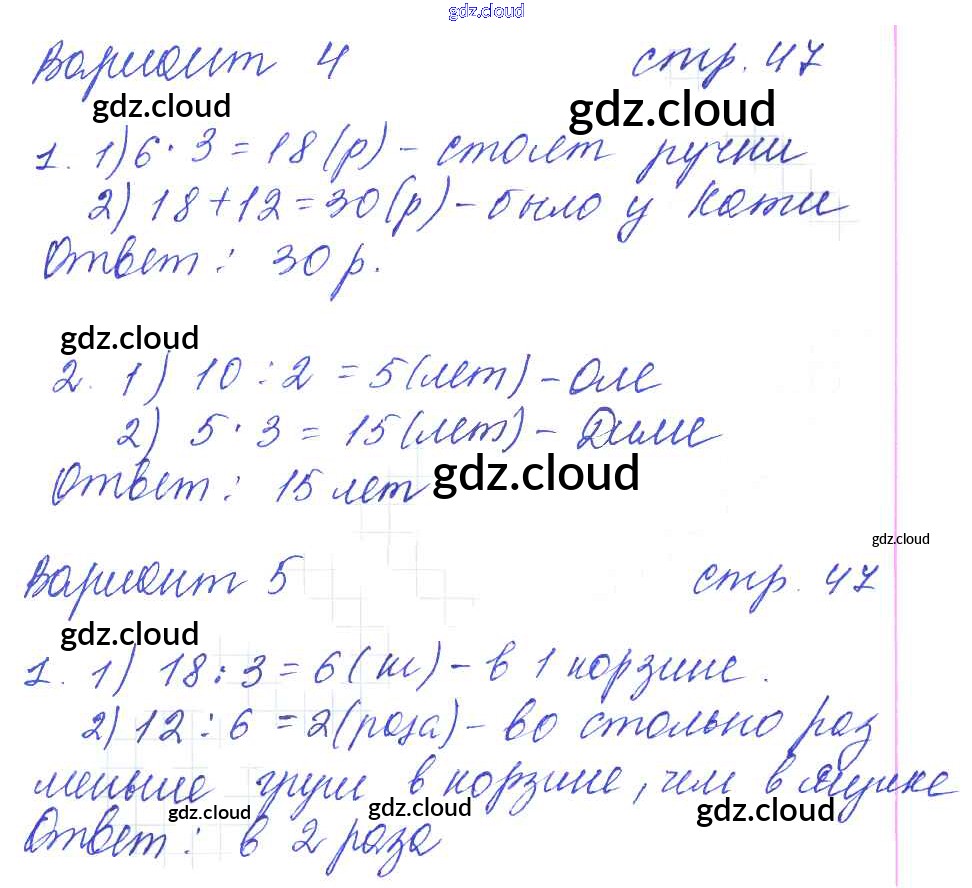 gdz.cloud
Вариант 4 стр. 47
gdz.cloud gdz.cloud
1. 1) 6 · 3 = 18 (р) – стоят ручки
2) 18 + 12 = 30 (р) – было у Кати
Ответ : 30 р.
gdz.cloud
2. 1) 10 : 2 = 5 (лет) – Оле
2) 5 · 3 = 15 (лет) – Диме
Ответ : 15 лет
gdz.cloud
gdz.cloud
Вариант 5 стр. 47
gdz.cloud
1. 1) 18 : 3 = 6 (кг) – в 1 корзине.
2) 12 : 6 = 2 (раза) – во столько раз
меньше груш в корзине, чем в ящике
gdz.cloud gdz.cloud gdz.cloud
Ответ : в 2 раза